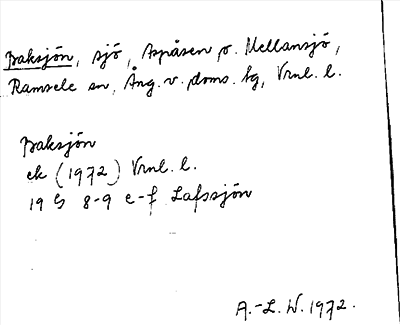 Baksjön, sjö, Aspåsen o. Mellansjö,
Ramsele sn, Ång. v. doms. tg, Vrnl. l.
Baksjön
ek (1972) Vrnl. l.
19 G 8-9 e-f Lafssjön
A.-L. W. 1972.